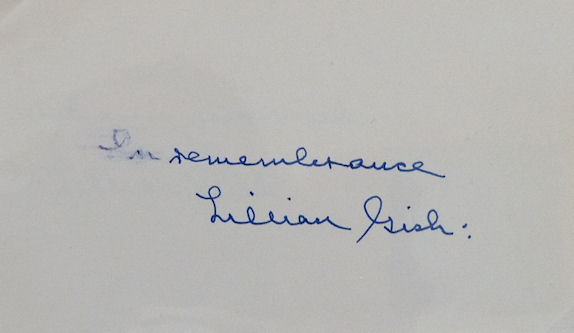 In rememberance
Lillian Gish: